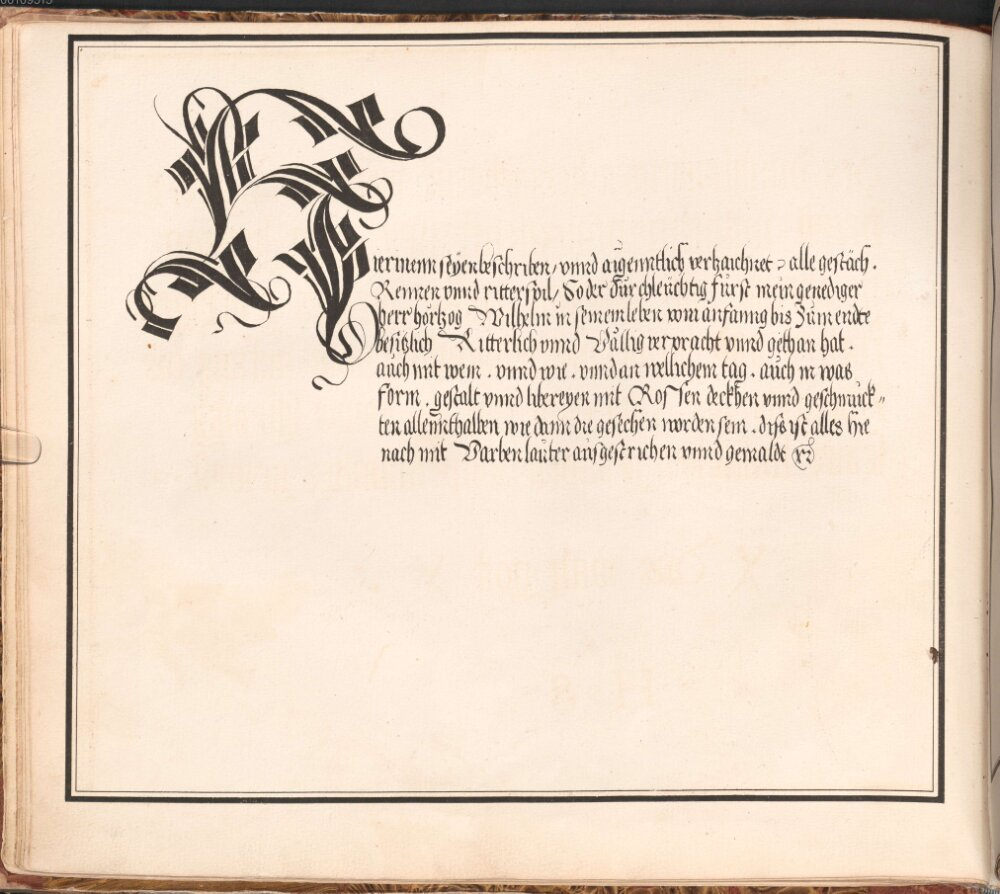 00109315
Hierinnen seyen beschriben, vnnd aigenntlich verhzaichnet, alle gestäch.
Rennen vnnd ritterspil, So der durchleüchtig fürst mein genediger
herr hörtzog Wilhelm in seinem leben vom anfanng bis zum endte
besitzlich Ritterlich vnnd Vällig verpracht vnnd gethan hat.
auch mit wem. vnnd wie. vnnd an wellichem tag. auch in was
form. gestalt vnnd libereyen mit Rossen deckhen vnnd geschmuck„
ten allennthalben wie dann die gesechen worden sein. diss ist alles hie
nach mit Varben lauter ausgestrichen vnnd gemaldt